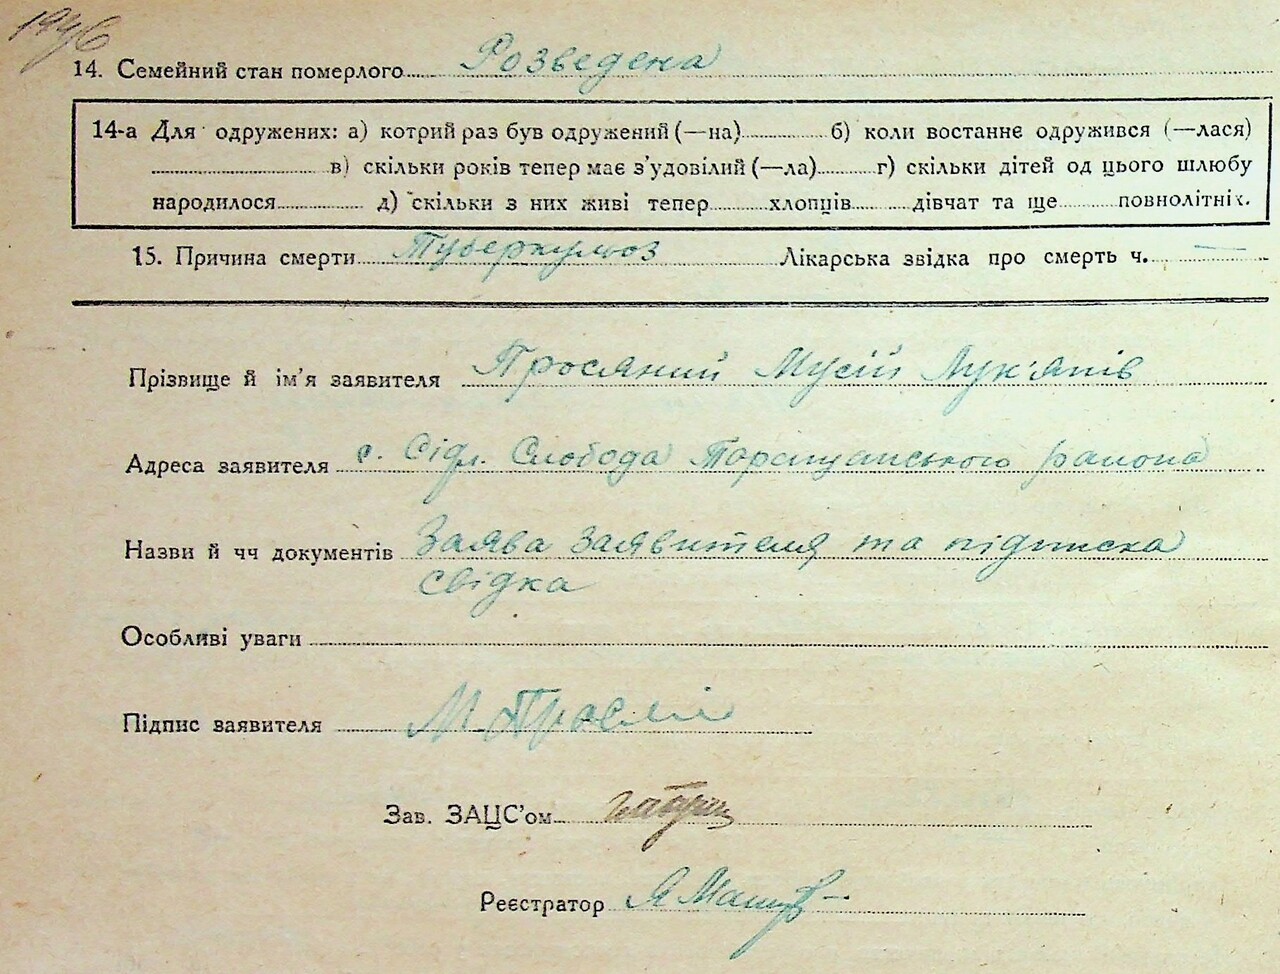 1946
14. Семейний стан померлого Розведена
14-а Для одружених: а) котрий раз був одружений (—на) б) коли востаннє одружився (—лася)
в) скільки років тепер має з'удовілий (—ла) г) скільки дітей од цього шлюбу
народилося д) скільки з них живі тепер хлопців дівчат та ще повнолітніх.
15. Причина смерти Туберкульоз Лікарська звідка про смерть ч. —
Прізвище й ім'я заявителя Просяний Мусій Лук'янів
Адреса заявителя с. Сідл. Слобода Таращанського района
Назви й чч документів Заява заявителя та підписка
свідка
Особливі уваги
Підпис заявителя М Прося
Зав. ЗАЦС'ом
Реєстратор